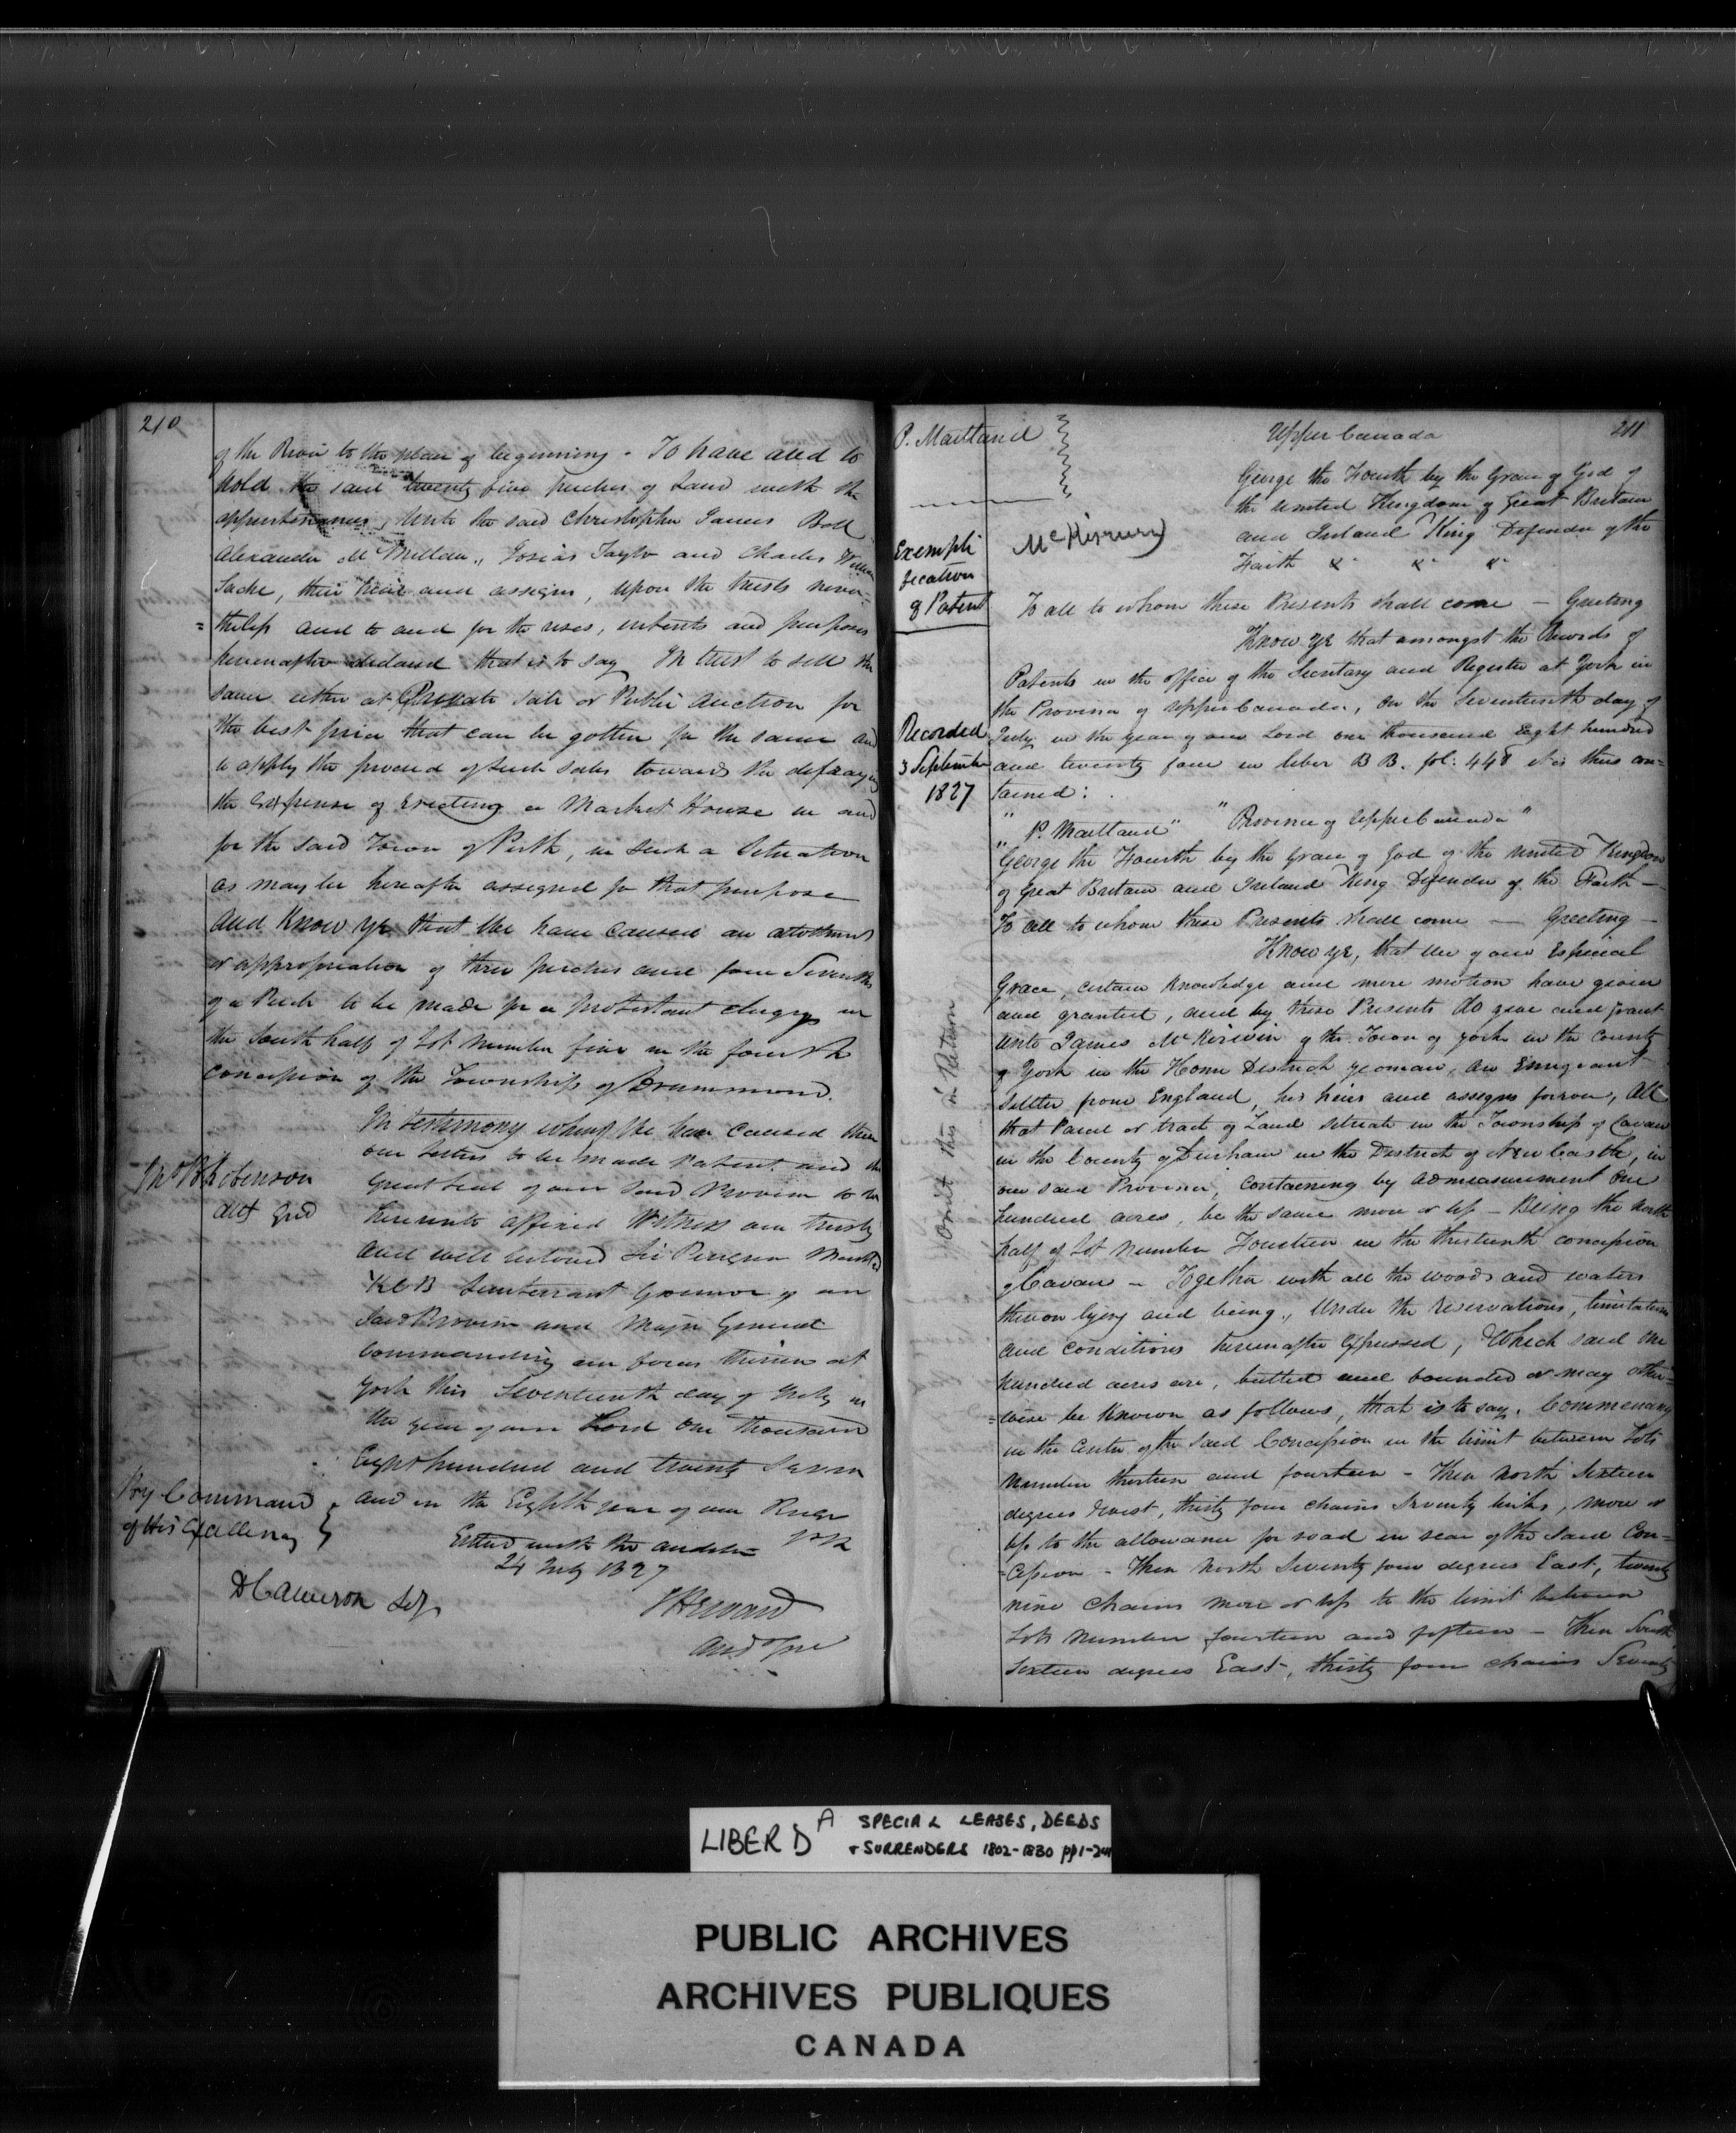 210
of the River to the place of beginning - To have and to
hold the said twenty five perches of Land with the
appurtenances, unto the said Christopher James Bell
Alexander McMillan, Josias Taylor and Charles William
Sache, their heirs and assigns, upon the trusts never=
=theless and to and for the uses, intents and purposes
hereinafter declared that is to say In trust to sell the
same either at Private sale or Public Auction for
the best price that can be gotten for the same and
to apply the proceed of such sales towards the defraying
the Expense of Erecting a Market House in and
for the said Town of Perth, in such a Situation
as may be hereafter assigned for that purpose
And Know Ye that We have caused an allotment
or appropriation of three perches and four Sevenths
of a Perch to be made for a protestant clergy in
the South half of Lot Number five in the fourth
Concession of the Township of Drummond.
In testimony whereof We have caused these
our Letters to be made Patent and the
Great Seal of our said Province to be
hereunto affixed Witness our trusty
and well beloved Sir Peregrine Maitland
KCB Lieutenant Governor of our
said Province and Major General
Commanding our forces therein at
York this Seventeenth day of July in
the year of our Lord One thousand
Eight hundred and twenty Seven
and in the Eighth year of our Reign
Jno B Robinson
Att Genl
By Command
of His Excellency
Entered with the Auditor
24 July 1827
D Cameron Secy
J Heward
Aud Genl
211
P. Maitland
Upper Canada
George the Fourth by the Grace of God of
the United Kingdom of Great Britain
and Ireland King Defender of the
Faith &c &c &c
Exempli
fication
of Patent
McKirwin
To all to whom these Presents shall come - Greeting
Know Ye that amongst the Records of
Patents in the office of the Secretary and Register at York in
the Province of Upper Canada, on the Seventeenth day of
July in the year of our Lord one thousand Eight hundred
and twenty four in liber B B. fol: 448 it is thus con=
tained:
Recorded
3 September
1827
"P. Maitland" "Province of Upper Canada"
"George the Fourth by the Grace of God of the United Kingdom
of Great Britain and Ireland King Defender of the Faith -
To all to whom these Presents shall come - Greeting -
Know Ye, that We of our Especial
Grace, certain Knowledge and mere motion have given
and granted, and by these Presents do give and grant
unto James McKirwin of the Town of York in the County
of York in the Home District yeoman, an Emigrant
Settler from England, his heirs and assigns forever, All
that Parcel or tract of Land situate in the Township of Cavan
in the County of Durham in the District of New Castle, in
our said Province, Containing by admeasurement One
hundred acres, be the same more or less - Being the North
half of Lot Number Fourteen in the thirteenth concession
of Cavan - Together with all the woods and waters
thereon lying and being, Under the reservations, limitations
and conditions hereinafter expressed, Which said One
hundred acres are, butted and bounded or may other=
=wise be Known as follows, that is to say. Commencing
in the Center of the said Concession in the limit between Lots
Number thirteen and fourteen - Then North Sixteen
degrees West, thirty four chains Seventy links, more or
less to the allowance for road in rear of the said Con=
=cession - Then North Seventy four degrees East, twenty
nine chains more or less to the limit between
Lots Number fourteen and fifteen - Then South
Sixteen degrees East, thirty four chains Seventy
Omit this in Return
LIBER D A SPECIAL LEASES, DEEDS
+ SURRENDERS 1802-1830 pp1-241
PUBLIC ARCHIVES
ARCHIVES PUBLIQUES
CANADA